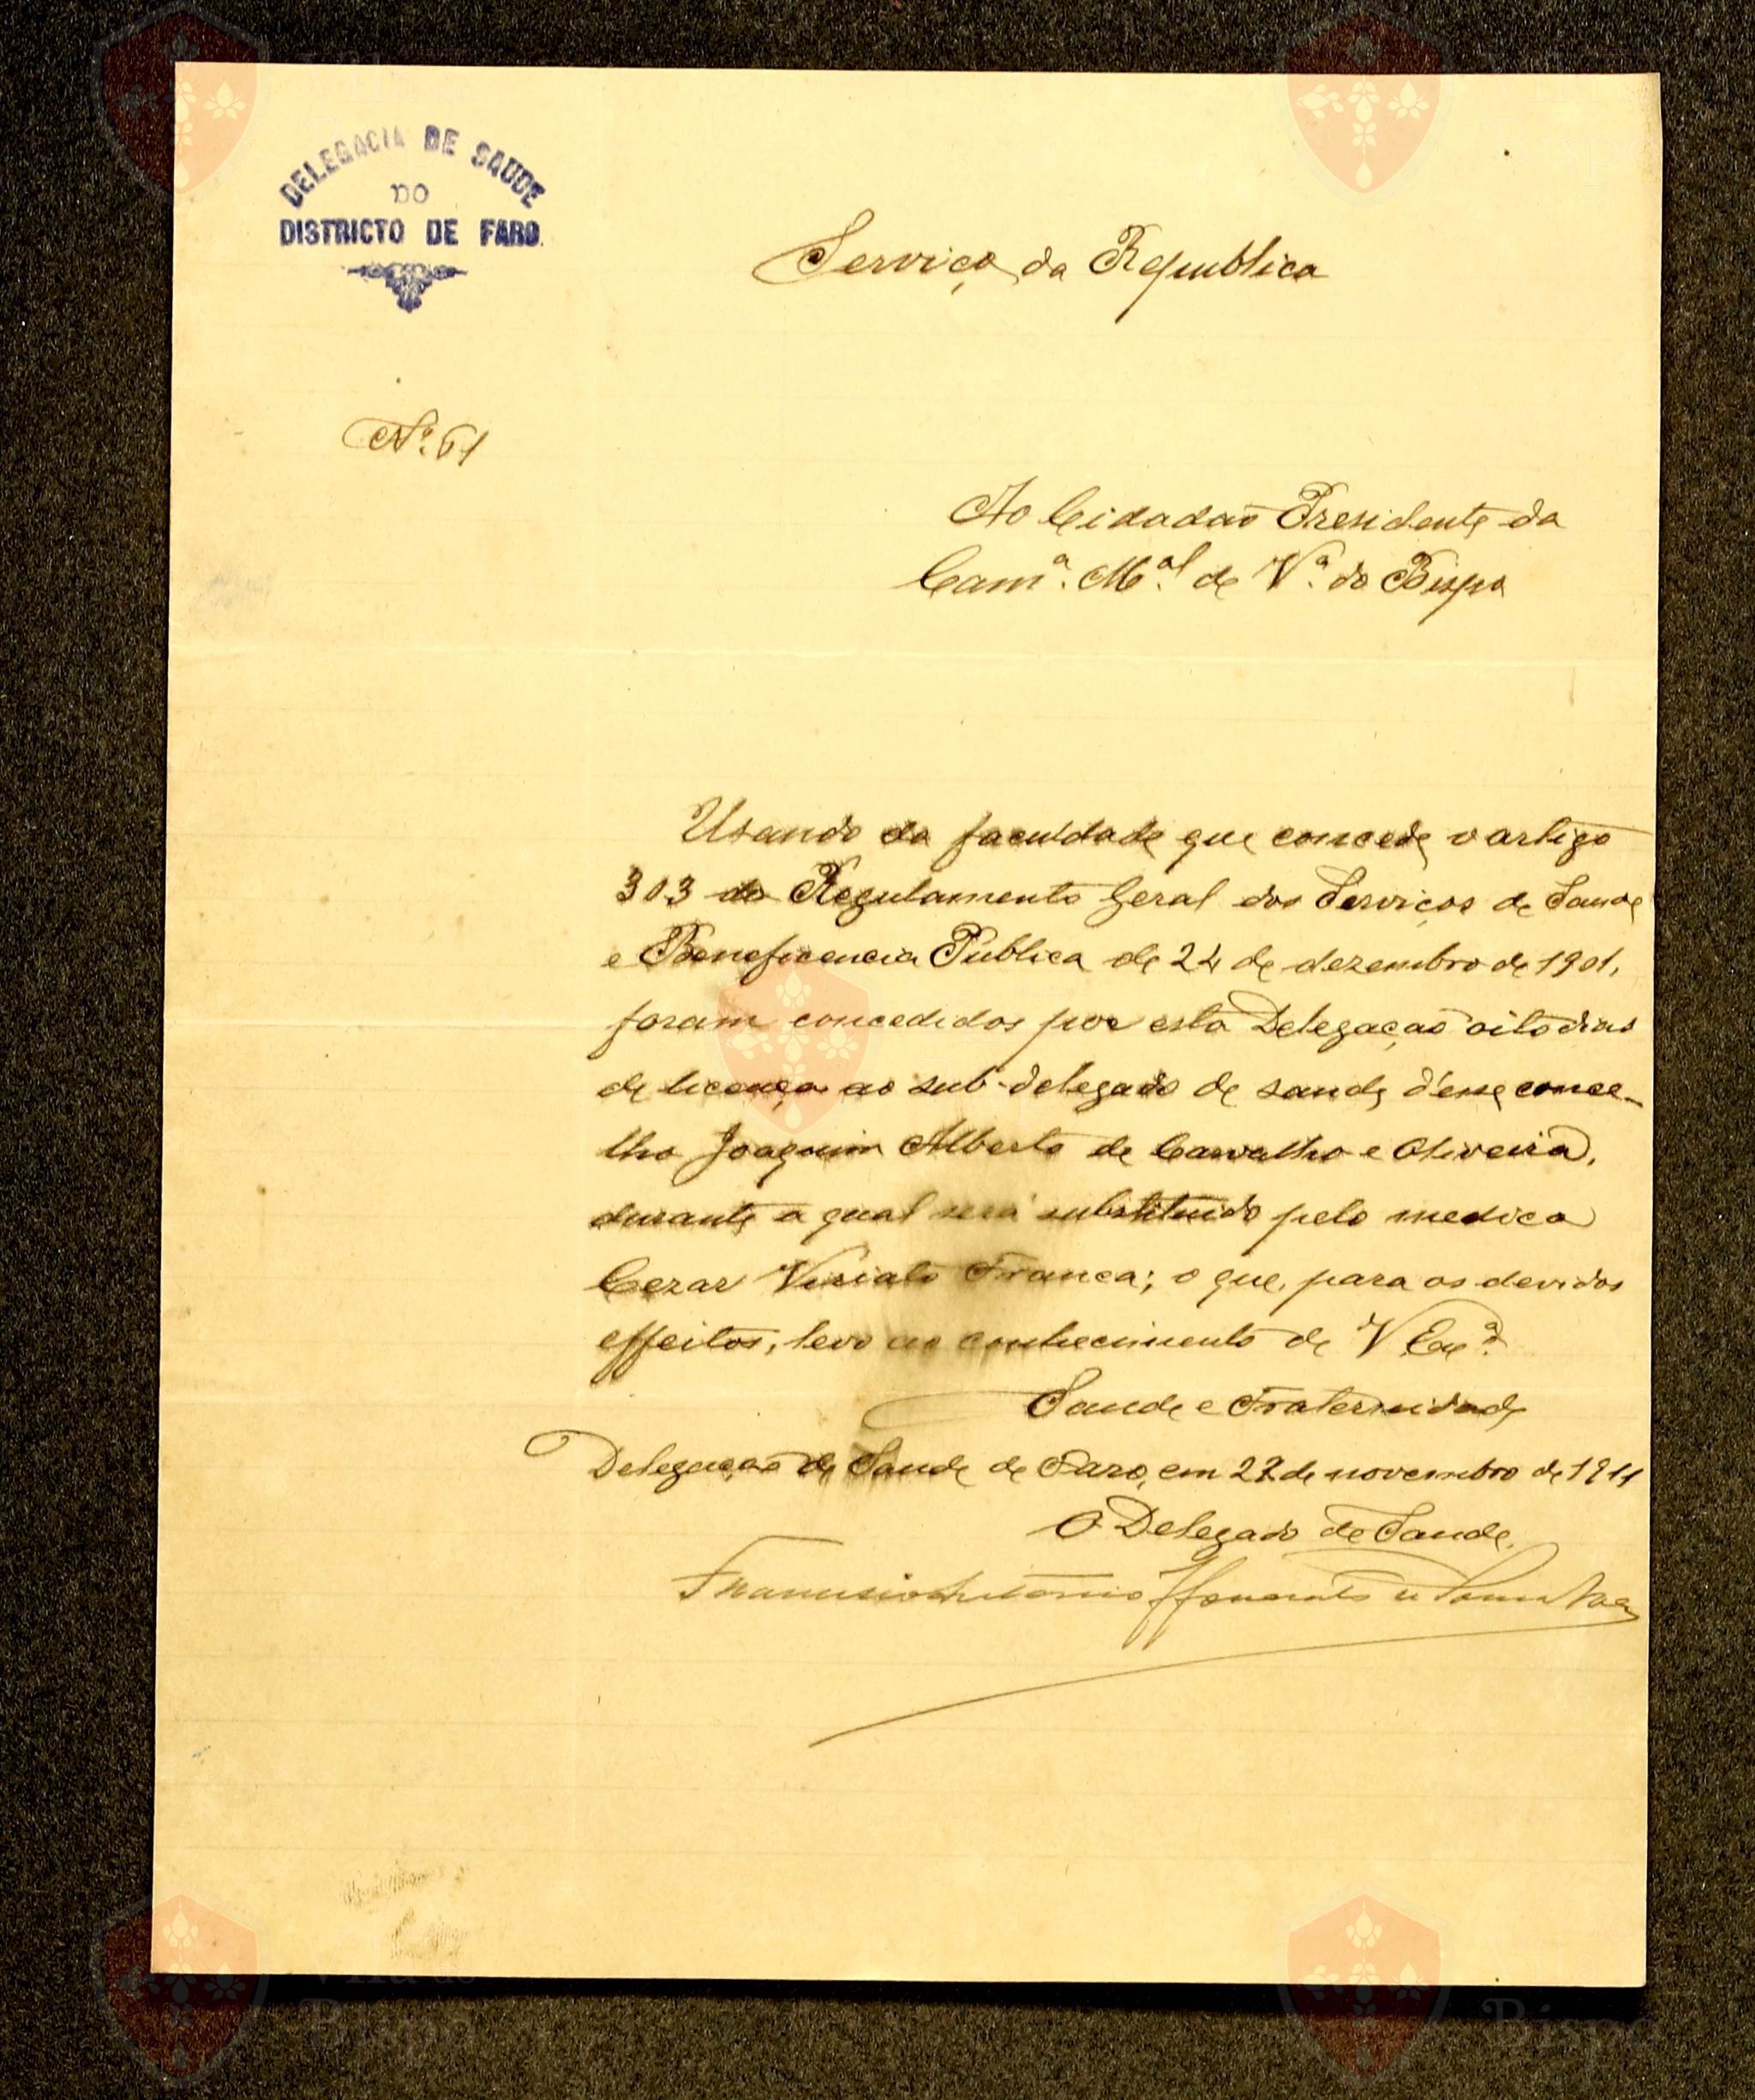 DELEGACIA DE SAUDE
DO
DISTRICTO DE FARO
Serviço da Republica
Nº. 61
Ao Cidadão Presidente da
Camª. Mal. de Vª. do Bispo
Usando da faculdade que concede o artigo
303 do Regulamento Geral dos Serviços de Saude
e Beneficencia Publica de 24 de dezembro de 1901,
foram concedidos por esta Delegação oito dias
de licença ao sub-delegado de saude d'esse conce-
lho Joaquim Alberto de Carvalho e Oliveira,
durante a qual será substituido pelo medico
Cezar Viriato Franca; o que, para os devidos
effeitos, levo ao conhecimento de V. Exª.
Saude e Fraternidade
Delegação de Saude de Faro, em 22 de novembro de 1911
O Delegado de Saude,
Francisco Antonio
Vila do
Bispo
Bispo